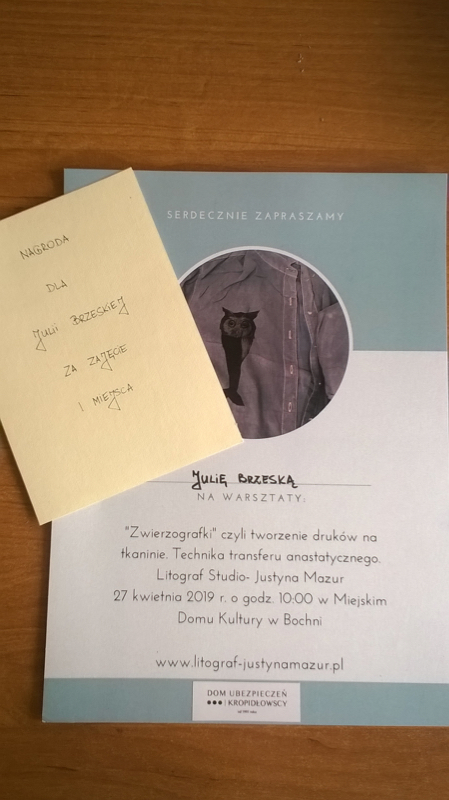 NAGRODA
DLA
JULII BRZESKIEJ
ZA ZAJĘCIE
I MIEJSCA
SERDECZNIE ZAPRASZAMY
JULIĘ BRZESKĄ
NA WARSZTATY:
"Zwierzografki" czyli tworzenie druków na
tkaninie. Technika transferu anastatycznego.
Litograf Studio- Justyna Mazur
27 kwietnia 2019 r. o godz. 10:00 w Miejskim
Domu Kultury w Bochni
www.litograf-justynamazur.pl
DOM UBEZPIECZEŃ
KROPIDŁOWSCY